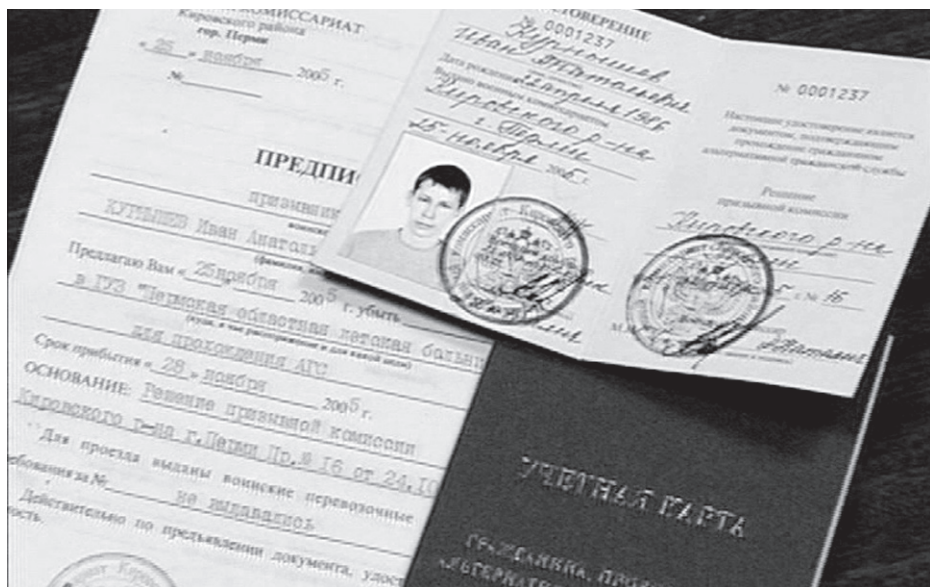 КОМИССАРИАТ
Кировского района
гор. Перми
« 25 » ноября 2005 г.
№
ПРЕДПИС
призывник
КУРНЫШЕВ Иван Анатоль
(фамилия,
Предлагаю Вам « 25 ноября 2005 г. убыть
в ГУЗ "Пермская областная детская больн
(куда, в чье распоряжение и для какой цели)
для прохождения АГС
Срок прибытия « 28 » ноября 2005 г.
ОСНОВАНИЕ: Решение призывной комиссии
Кировского р-на г.Перми Пр.№ 16 от 24.10
Для проезда выданы воинские перевозочные
требования за № не выдавались
Действительно по предъявлении документа, удост
ность.
УДОСТОВЕРЕНИЕ
№ 0001237
Иван Анатольевич
Дата рождения 12 апреля 1986
Выдано военным комиссариатом
Кировского р-на
г. Перми
25 ноября 2005 г.
№ 0001237
Настоящее удостоверение является
документом, подтверждающим
прохождение гражданином
альтернативной гражданской службы
Решение
призывной комиссии
Кировского р-на
г. № 16
М.
УЧЕТНАЯ КАРТА
ГРАЖДАНИНА, ПРОХО
АЛЬТЕРНАТИ